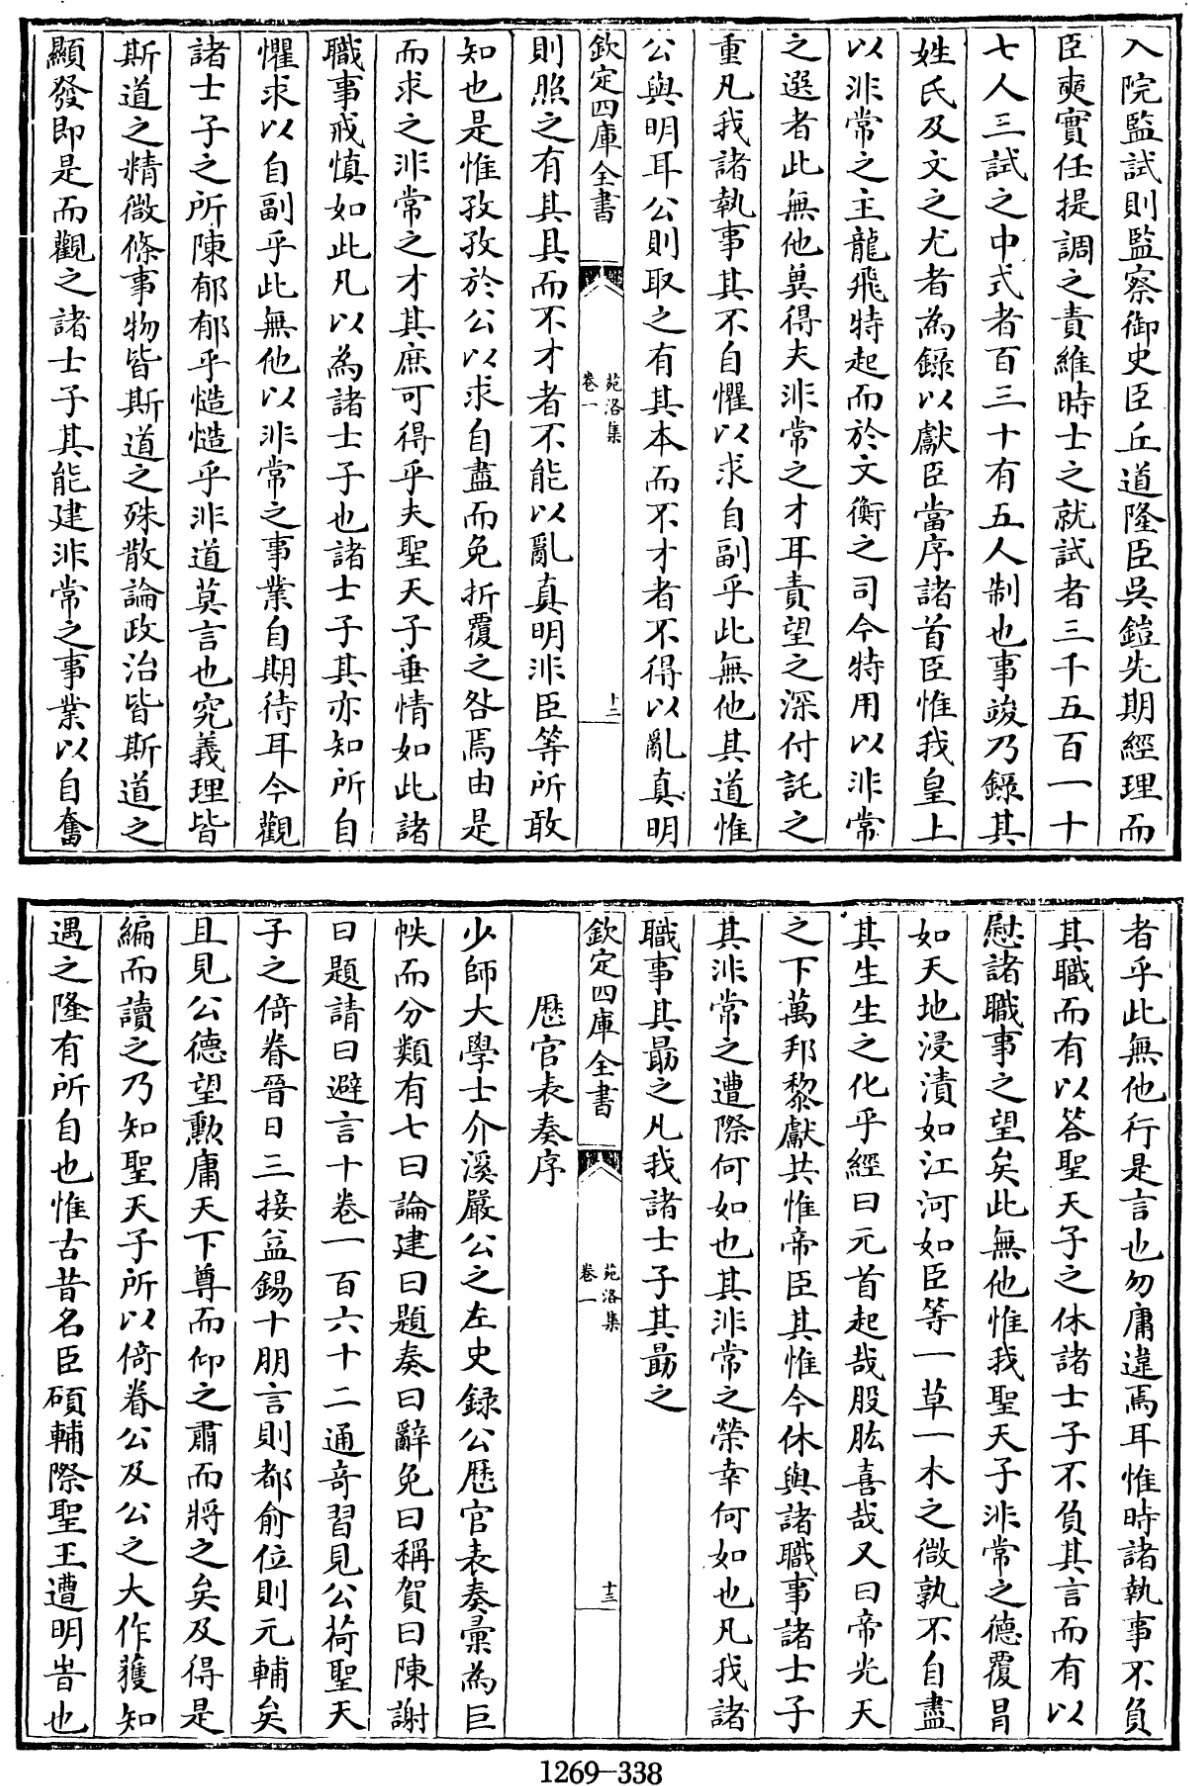 入院監試則監察御史臣丘道隆臣吳鎧先期經理而
臣奭實任提調之責維時士之就試者三千五百一十
七人三試之中式者百三十有五人制也事竣乃錄其
姓氏及文之尤者為錄以獻臣當序諸首臣惟我皇上
以非常之主龍飛特起而於文衡之司今特用以非常
之選者此無他冀得夫非常之才耳責望之深付託之
重凡我諸執事其不自懼以求自副乎此無他其道惟
公與明耳公則取之有其本而不才者不得以亂真明
欽定四庫全書
苑洛集
卷一
十二
則照之有其具而不才者不能以亂真明非臣等所敢
知也是惟孜孜於公以求自盡而免折覆之咎焉由是
而求之非常之才其庶可得乎夫聖天子垂情如此諸
職事戒慎如此凡以為諸士子也諸士子其亦知所自
懼求以自副乎此無他以非常之事業自期待耳今觀
諸士子之所陳郁郁乎慥慥乎非道莫言也究義理皆
斯道之精微條事物皆斯道之殊散論政治皆斯道之
顯發即是而觀之諸士子其能建非常之事業以自奮
者乎此無他行是言也勿庸違焉耳惟時諸執事不負
其職而有以答聖天子之休諸士子不負其言而有以
慰諸職事之望矣此無他惟我聖天子非常之德覆冒
如天地浸漬如江河如臣等一草一木之微孰不自盡
其生生之化乎經曰元首起哉股肱喜哉又曰帝光天
之下萬邦黎獻共惟帝臣其惟今休與諸職事諸士子
其非常之遭際何如也其非常之榮幸何如也凡我諸
職事其勗之凡我諸士子其勗之
欽定四庫全書
苑洛集
卷一
十三
歷官表奏序
少師大學士介溪嚴公之左史録公歷官表奏彙為巨
帙而分類有七曰論建曰題奏曰辭免曰稱賀曰陳謝
曰題請曰避言十卷一百六十二通竒習見公荷聖天
子之倚眷晉日三接益錫十朋言則都俞位則元輔矣
且見公德望勲庸天下尊而仰之肅而將之矣及得是
編而讀之乃知聖天子所以倚眷公及公之大作獲知
遇之隆有所自也惟古昔名臣碩輔際聖王遭明旹也
1269-338